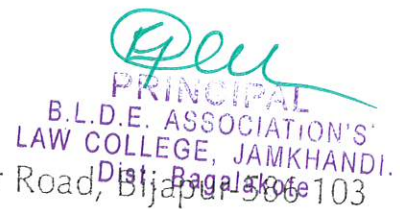 PRINCIPAL
B.L.D.E. ASSOCIATION'S
LAW COLLEGE, JAMKHANDI.
Dist; Bagalakote
Road, Bijapur-586 103